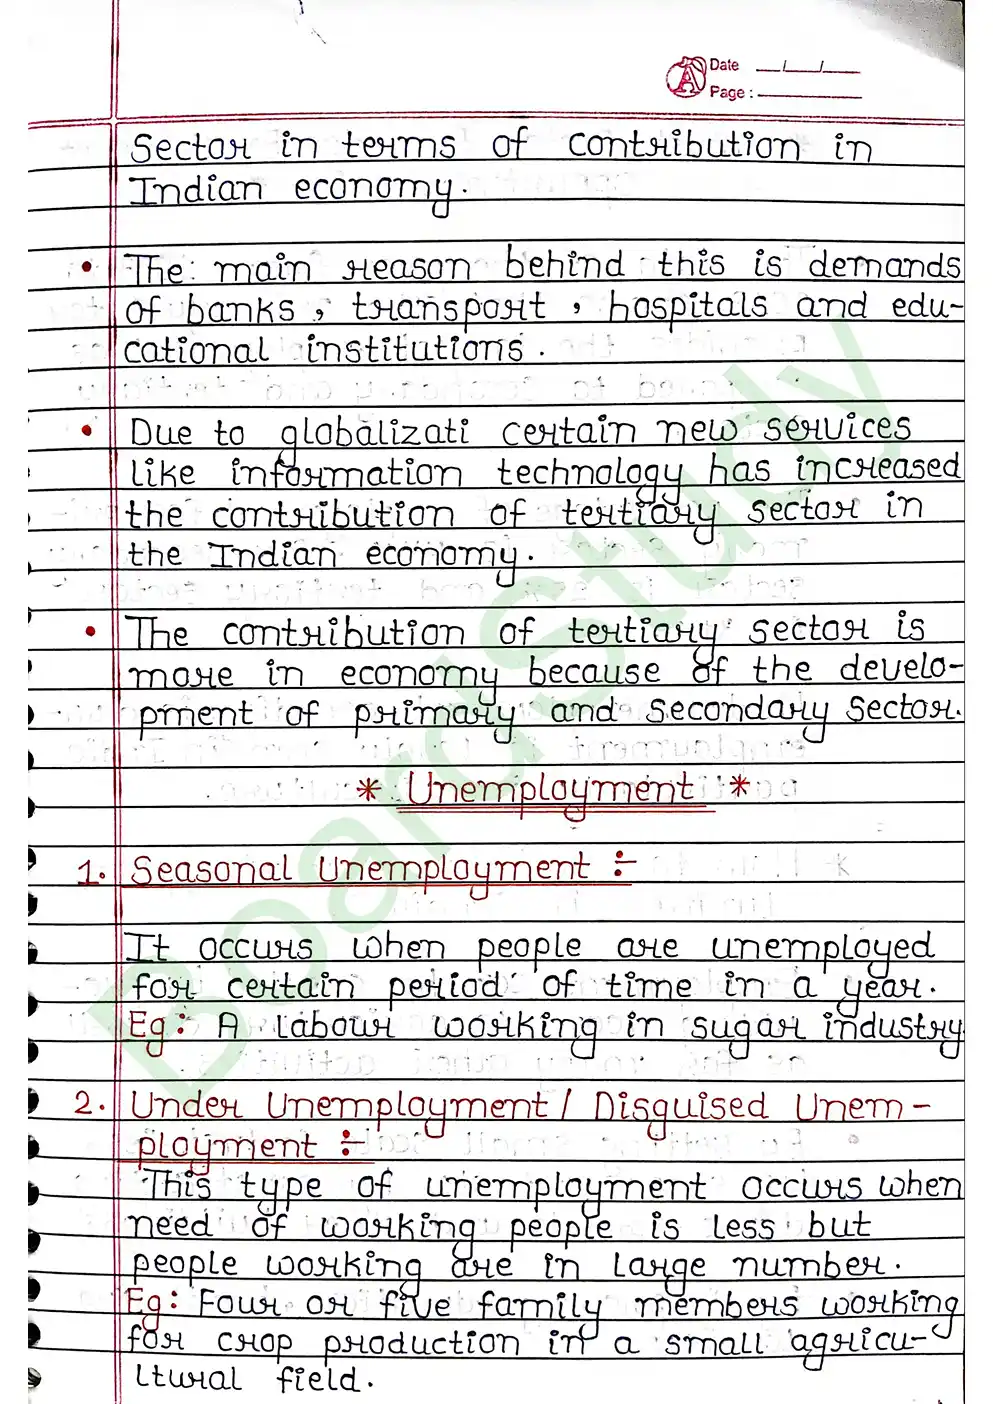 Date __/__/__
Page : ______
Sector in terms of contribution in
Indian economy.
• The main reason behind this is demands
of banks, transport, hospitals and edu-
cational institutions.
• Due to globalizati certain new services
like information technology has increased
the contribution of tertiary sector in
the Indian economy.
• The contribution of tertiary sector is
more in economy because of the develo-
pment of primary and secondary sector.
* Unemployment *
1. Seasonal Unemployment :-
It occurs when people are unemployed
for certain period of time in a year.
Eg: A labour working in sugar industry
2. Under Unemployment / Disguised Unem-
ployment :-
This type of unemployment occurs when
need of working people is less but
people working are in large number.
Eg: Four or five family members working
for crop production in a small agricu-
ltural field.
BoardStudy